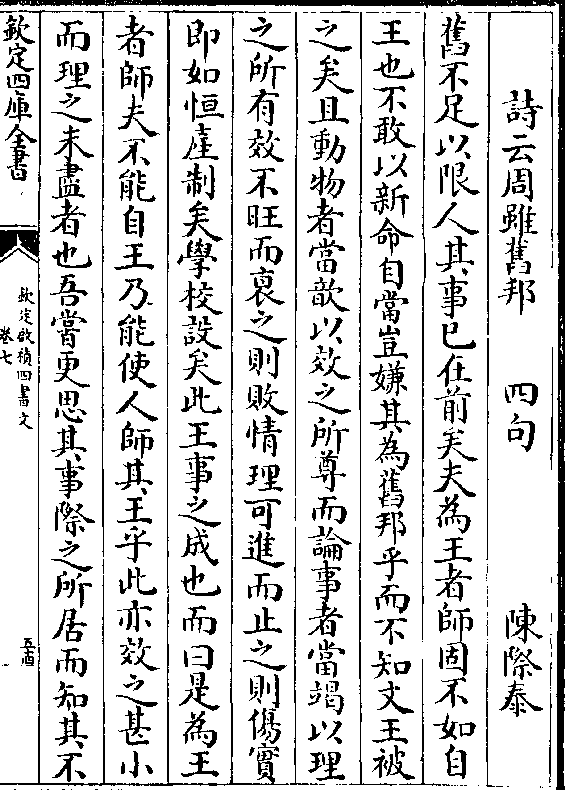 詩云周雖舊邦　四句　陳際泰
舊不足以限人其事已在前矣夫為王者師固不如自
王也不敢以新命自當豈嫌其為舊邦乎而不知文王被
之矣且動物者當歆以效之所尊而論事者當竭以理
之所有效不旺而裒之則敗情理可進而止之則傷實
即如恒產制矣學校設矣此王事之成也而曰是為王
者師夫不能自王乃能使人師其王乎此亦效之甚小
而理之未盡者也吾嘗更思其事際之所居而知其不
欽定四庫全書
欽定啟禎四書文
卷七